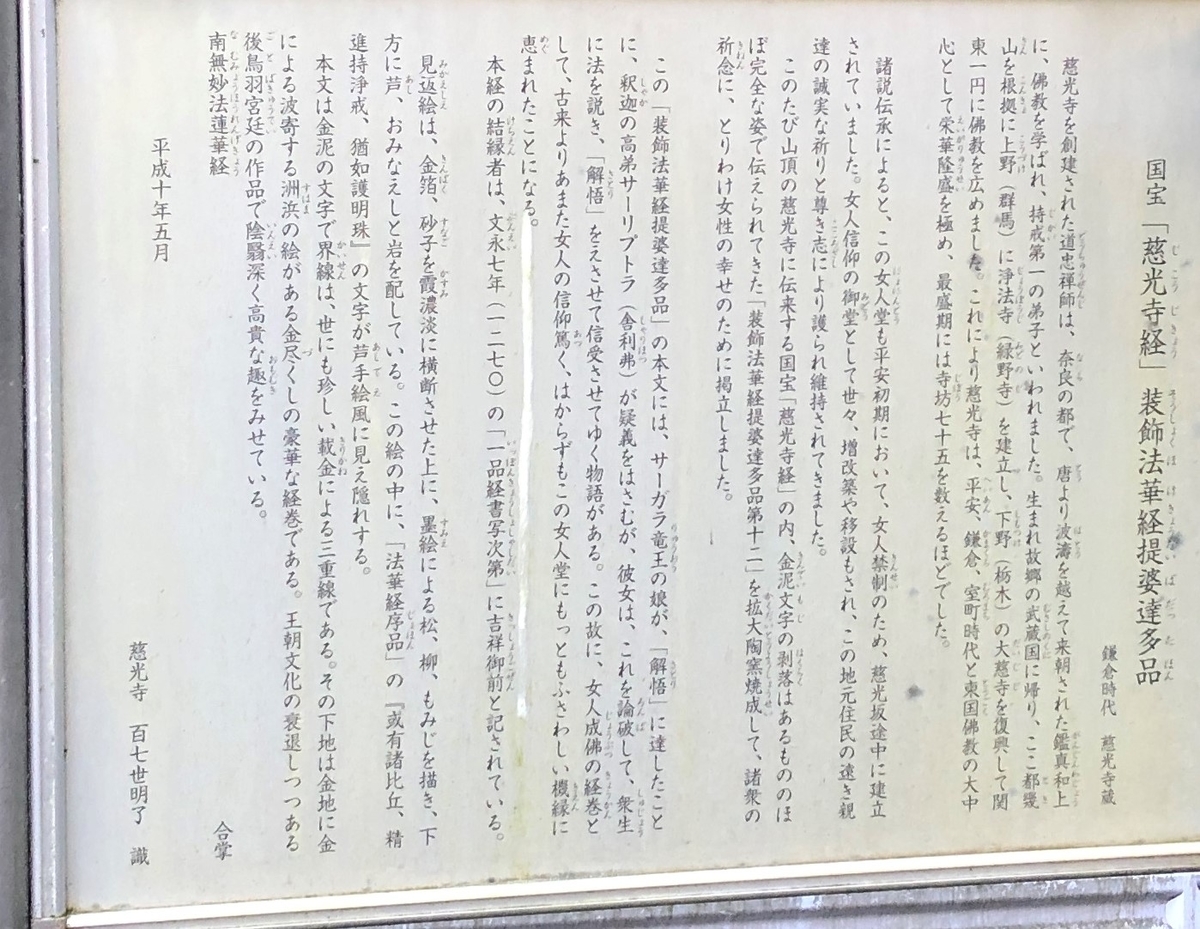 国宝「慈光寺経」装飾法華経提婆達多品
鎌倉時代 慈光寺蔵
慈光寺を創建された道忠禅師は、奈良の都で、唐より波濤を越えて来朝された鑑真和上
に、佛教を学ばれ、持戒第一の弟子といわれました。生まれ故郷の武蔵国に帰り、ここ都幾
山を根拠に上野(群馬)に浄法寺(緑野寺)を建立し、下野(栃木)の大慈寺を復興して関
東一円に佛教を広めました。これにより慈光寺は、平安、鎌倉、室町時代と東国佛教の大中
心として栄華隆盛を極め、最盛期には寺坊七十五を数えるほどでした。
諸説伝承によると、この女人堂も平安初期において、女人禁制のため、慈光坂途中に建立
されていました。女人信仰の御堂として世々、増改築や移設もされ、この地元住民の遠き親
達の誠実な祈りと尊き志により護られ維持されてきました。
このたび山頂の慈光寺に伝来する国宝「慈光寺経」の内、金泥文字の剥落はあるもののほ
ぼ完全な姿で伝えられてきた「装飾法華経提婆達多品第十二」を拡大陶窯焼成して、諸衆の
祈念に、とりわけ女性の幸せのために掲立しました。
この「装飾法華経提婆達多品」の本文には、サーガラ竜王の娘が、「解悟」に達したこと
に、釈迦の高弟サーリプトラ(舎利弗)が疑義をはさむが、彼女は、これを論破して、衆生
に法を説き、「解悟」をえさせて信受させてゆく物語がある。この故に、女人成佛の経巻と
して、古来よりあまた女人の信仰篤く、はからずもこの女人堂にもっともふさわしい機縁に
恵まれたことになる。
本経の結縁者は、文永七年(一二七〇)の「一品経書写次第」に吉祥御前と記されている。
見返絵は、金箔、砂子を霞濃淡に横断させた上に、墨絵による松、柳、もみじを描き、下
方に芦、おみなえしと岩を配している。この絵の中に、「法華経序品」の『或有諸比丘、精
進持浄戒、猶如護明珠』の文字が芦手絵風に見え隠れする。
本文は金泥の文字で界線は、世にも珍しい截金による三重線である。その下地は金地に金
による波寄する洲浜の絵がある金尽くしの豪華な経巻である。王朝文化の衰退しつつある
後鳥羽宮廷の作品で陰翳深く高貴な趣をみせている。
南無妙法蓮華経
合掌
平成十年五月
慈光寺 百七世明了 識